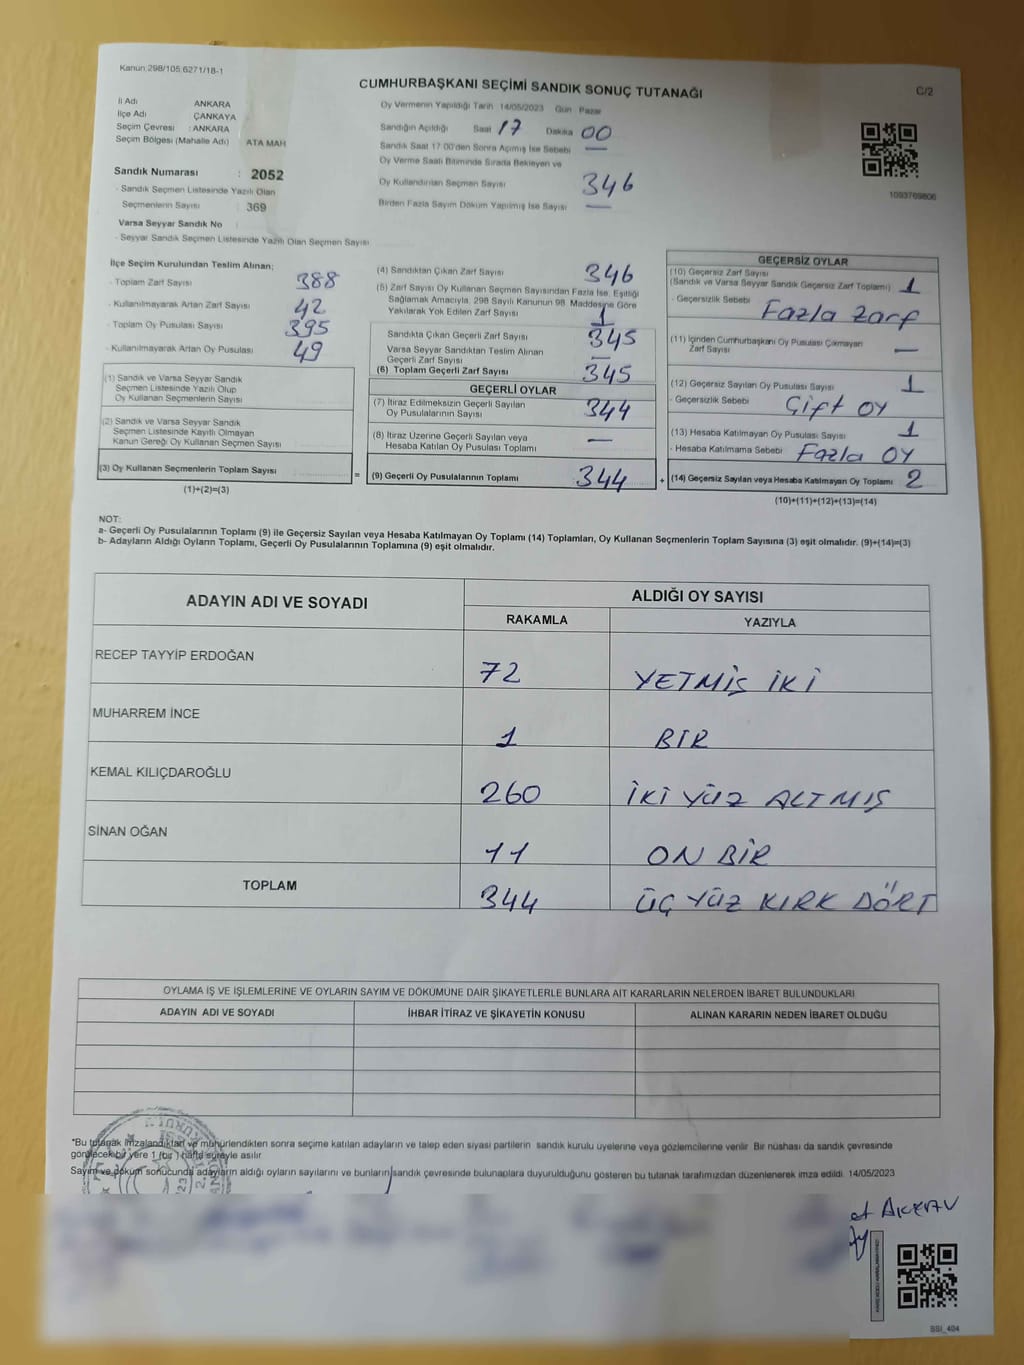 Kanun:298/105,6271/18-1
CUMHURBAŞKANI SEÇİMİ SANDIK SONUÇ TUTANAĞI
C/2
İl Adı ANKARA
İlçe Adı ÇANKAYA
Seçim Çevresi : ANKARA
Seçim Bölgesi (Mahalle Adı) ATA MAH
Sandık Numarası : 2052
- Sandık Seçmen Listesinde Yazılı Olan
Seçmenlerin Sayısı : 369
Varsa Seyyar Sandık No
- Seyyar Sandık Seçmen Listesinde Yazılı Olan Seçmen Sayısı
Oy Vermenin Yapıldığı Tarih 14/05/2023 Gün Pazar
Sandığın Açıldığı Saat 17 Dakika 00
Sandık Saat 17:00'den Sonra Açılmış İse Sebebi —
Oy Verme Saati Bitiminde Sırada Bekleyen ve
Oy Kullandırılan Seçmen Sayısı 346
Birden Fazla Sayım Döküm Yapılmış İse Sayısı —
1093769806
İlçe Seçim Kurulundan Teslim Alınan;
- Toplam Zarf Sayısı 388
- Kullanılmayarak Artan Zarf Sayısı 42
- Toplam Oy Pusulası Sayısı 395
- Kullanılmayarak Artan Oy Pusulası 49
(1) Sandık ve Varsa Seyyar Sandık
Seçmen Listesinde Yazılı Olup
Oy Kullanan Seçmenlerin Sayısı
(2) Sandık ve Varsa Seyyar Sandık
Seçmen Listesinde Kayıtlı Olmayan
Kanun Gereği Oy Kullanan Seçmen Sayısı
(3) Oy Kullanan Seçmenlerin Toplam Sayısı =
(1)+(2)=(3)
(4) Sandıktan Çıkan Zarf Sayısı 346
(5) Zarf Sayısı Oy Kullanan Seçmen Sayısından Fazla İse, Eşitliği
Sağlamak Amacıyla, 298 Sayılı Kanunun 98. Maddesine Göre
Yakılarak Yok Edilen Zarf Sayısı 1
Sandıkta Çıkan Geçerli Zarf Sayısı 345
Varsa Seyyar Sandıktan Teslim Alınan
Geçerli Zarf Sayısı —
(6) Toplam Geçerli Zarf Sayısı 345
GEÇERLİ OYLAR
(7) İtiraz Edilmeksizin Geçerli Sayılan
Oy Pusulalarının Sayısı 344
(8) İtiraz Üzerine Geçerli Sayılan veya
Hesaba Katılan Oy Pusulası Toplamı —
(9) Geçerli Oy Pusulalarının Toplamı 344 +
GEÇERSİZ OYLAR
(10) Geçersiz Zarf Sayısı
(Sandık ve Varsa Seyyar Sandık Geçersiz Zarf Toplamı) 1
- Geçersizlik Sebebi Fazla Zarf
(11) İçinden Cumhurbaşkanı Oy Pusulası Çıkmayan
Zarf Sayısı —
(12) Geçersiz Sayılan Oy Pusulası Sayısı 1
- Geçersizlik Sebebi Çift OY
(13) Hesaba Katılmayan Oy Pusulası Sayısı 1
- Hesaba Katılmama Sebebi Fazla OY
(14) Geçersiz Sayılan veya Hesaba Katılmayan Oy Toplamı 2
(10)+(11)+(12)+(13)=(14)
NOT:
a- Geçerli Oy Pusulalarının Toplamı (9) ile Geçersiz Sayılan veya Hesaba Katılmayan Oy Toplamı (14) Toplamları, Oy Kullanan Seçmenlerin Toplam Sayısına (3) eşit olmalıdır. (9)+(14)=(3)
b- Adayların Aldığı Oyların Toplamı, Geçerli Oy Pusulalarının Toplamına (9) eşit olmalıdır.
ADAYIN ADI VE SOYADI ALDIĞI OY SAYISI
RAKAMLA YAZIYLA
RECEP TAYYİP ERDOĞAN 72 YETMİŞ İKİ
MUHARREM İNCE 1 BİR
KEMAL KILIÇDAROĞLU 260 İKİ YÜZ ALTMIŞ
SİNAN OĞAN 11 ON BİR
TOPLAM 344 ÜÇ YÜZ KIRK DÖRT
OYLAMA İŞ VE İŞLEMLERİNE VE OYLARIN SAYIM VE DÖKÜMÜNE DAİR ŞİKAYETLERLE BUNLARA AİT KARARLARIN NELERDEN İBARET BULUNDUKLARI
ADAYIN ADI VE SOYADI İHBAR İTİRAZ VE ŞİKAYETİN KONUSU ALINAN KARARIN NEDEN İBARET OLDUĞU
*Bu tutanak imzalandıktan ve mühürlendikten sonra seçime katılan adayların ve talep eden siyasi partilerin sandık kurulu üyelerine veya gözlemcilerine verilir. Bir nüshası da sandık çevresinde
görülecek bir yere 1 (bir ) hafta süreyle asılır.
Sayım ve döküm sonucunda adayların aldığı oyların sayılarını ve bunların sandık çevresinde bulunanlara duyurulduğunu gösteren bu tutanak tarafımızdan düzenlenerek imza edildi. 14/05/2023
BSI_404